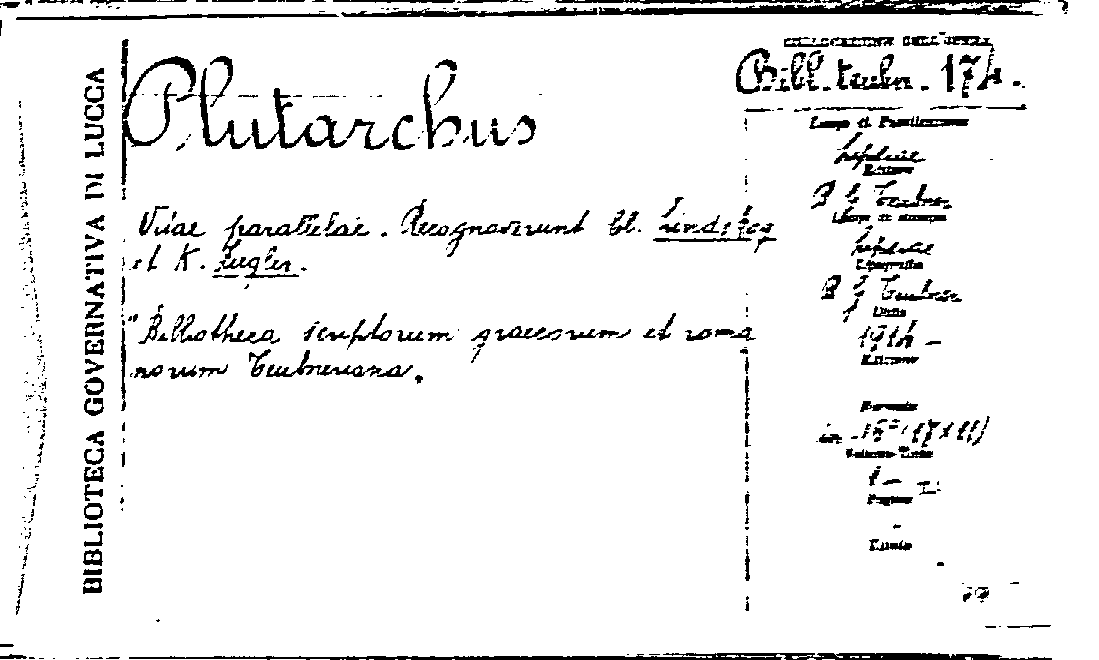 BIBLIOTECA GOVERNATIVA DI LUCCA
Plutarchus
Vitae parallelae. Recognoverunt Cl. Lindskog
et K. Ziegler.
"Bibliotheca scriptorum graecorum et roma
norum Teubneriana.
COLLOCAZIONE DELL'OPERA
Bibl. teubn. 174.
Luogo di Pubblicazione
Lipsiae
Editore
B G Teubner
Luogo di stampa
Lipsiae
Tipografia
B G Teubner
Data
1914 -
Edizione
Formato
in 16° (17x11)
Volume-Tomo
1 -
Pagine